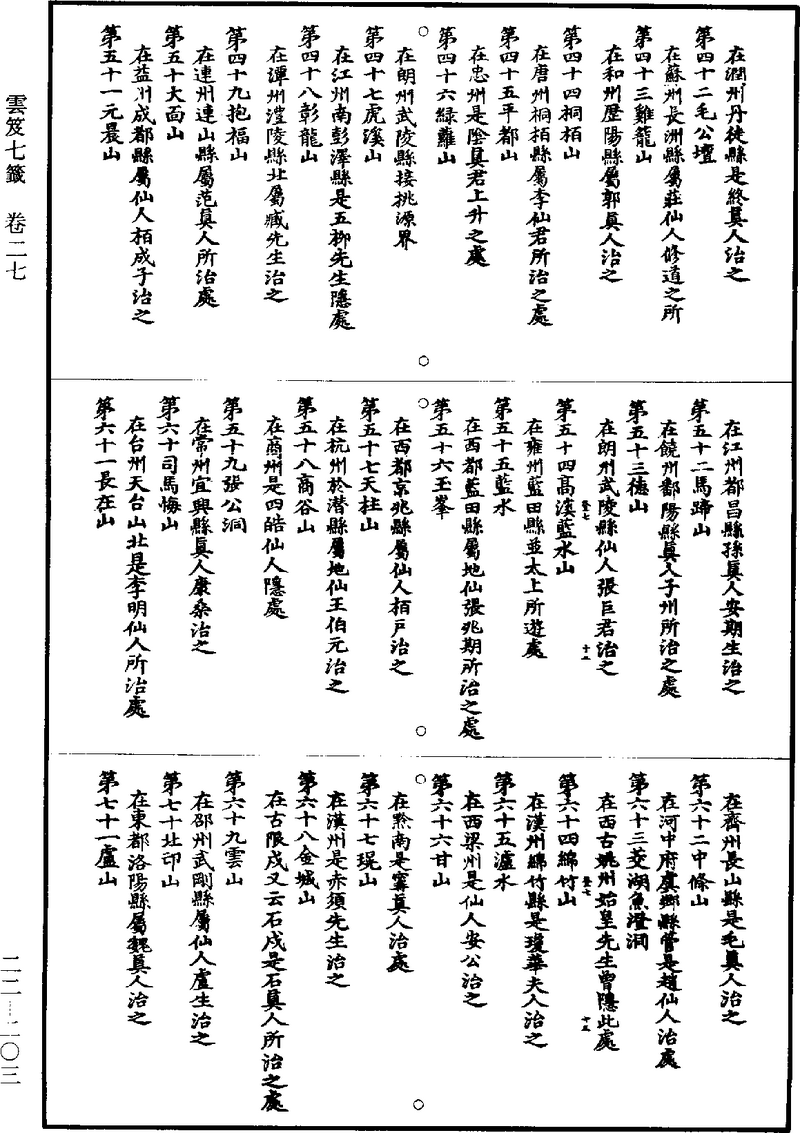 雲笈七籤　卷二七
在潤州丹徒縣是終眞人治之
第四十二毛公壇
在蘇州長洲縣屬莊仙人修道之所
第四十三雞籠山
在和州歷陽縣屬郭眞人治之
第四十四桐栢山
在唐州桐栢縣屬李仙君所治之處
第四十五平都山
在忠州是陰眞君上升之處
第四十六綠蘿山
在朗州武陵縣接桃源界
第四十七虎溪山
在江州南彭澤縣是五柳先生隱處
第四十八彰龍山
在潭州澧陵縣北屬臧先生治之
第四十九抱福山
在連州連山縣屬范眞人所治處
第五十大面山
在益州成都縣屬仙人栢成子治之
第五十一元晨山
在江州都昌縣孫眞人安期生治之
第五十二馬蹄山
在饒州鄱陽縣眞人子州所治之處
第五十三德山
在朗州武陵縣仙人張巨君治之
第五十四高溪藍水山
在雍州藍田縣並太上所遊處
第五十五藍水
在西都藍田縣屬地仙張兆期所治之處
第五十六玉峯
在西都京兆縣屬仙人栢戶治之
第五十七天柱山
在杭州於潛縣屬地仙王伯元治之
第五十八商谷山
在商州是四皓仙人隱處
第五十九張公洞
在常州宜興縣眞人康桑治之
第六十司馬悔山
在台州天台山北是李明仙人所治處
第六十一長在山
在齊州長山縣是毛眞人治之
第六十二中條山
在河中府虞鄉縣管是趙仙人治處
第六十三茭湖魚澄洞
在西古姚州始皇先生曾隱此處
第六十四綿竹山
在漢州綿竹縣是瓊華夫人治之
第六十五瀘水
在西梁州是仙人安公治之
第六十六甘山
在黔南是甯眞人治處
第六十七琨山
在漢州是赤須先生治之
第六十八金城山
在古限戍又云石戍是石眞人所治之處
第六十九雲山
在邵州武剛縣屬仙人盧生治之
第七十北邙山
在東都洛陽縣屬魏眞人治之
第七十一盧山
二二—二〇三